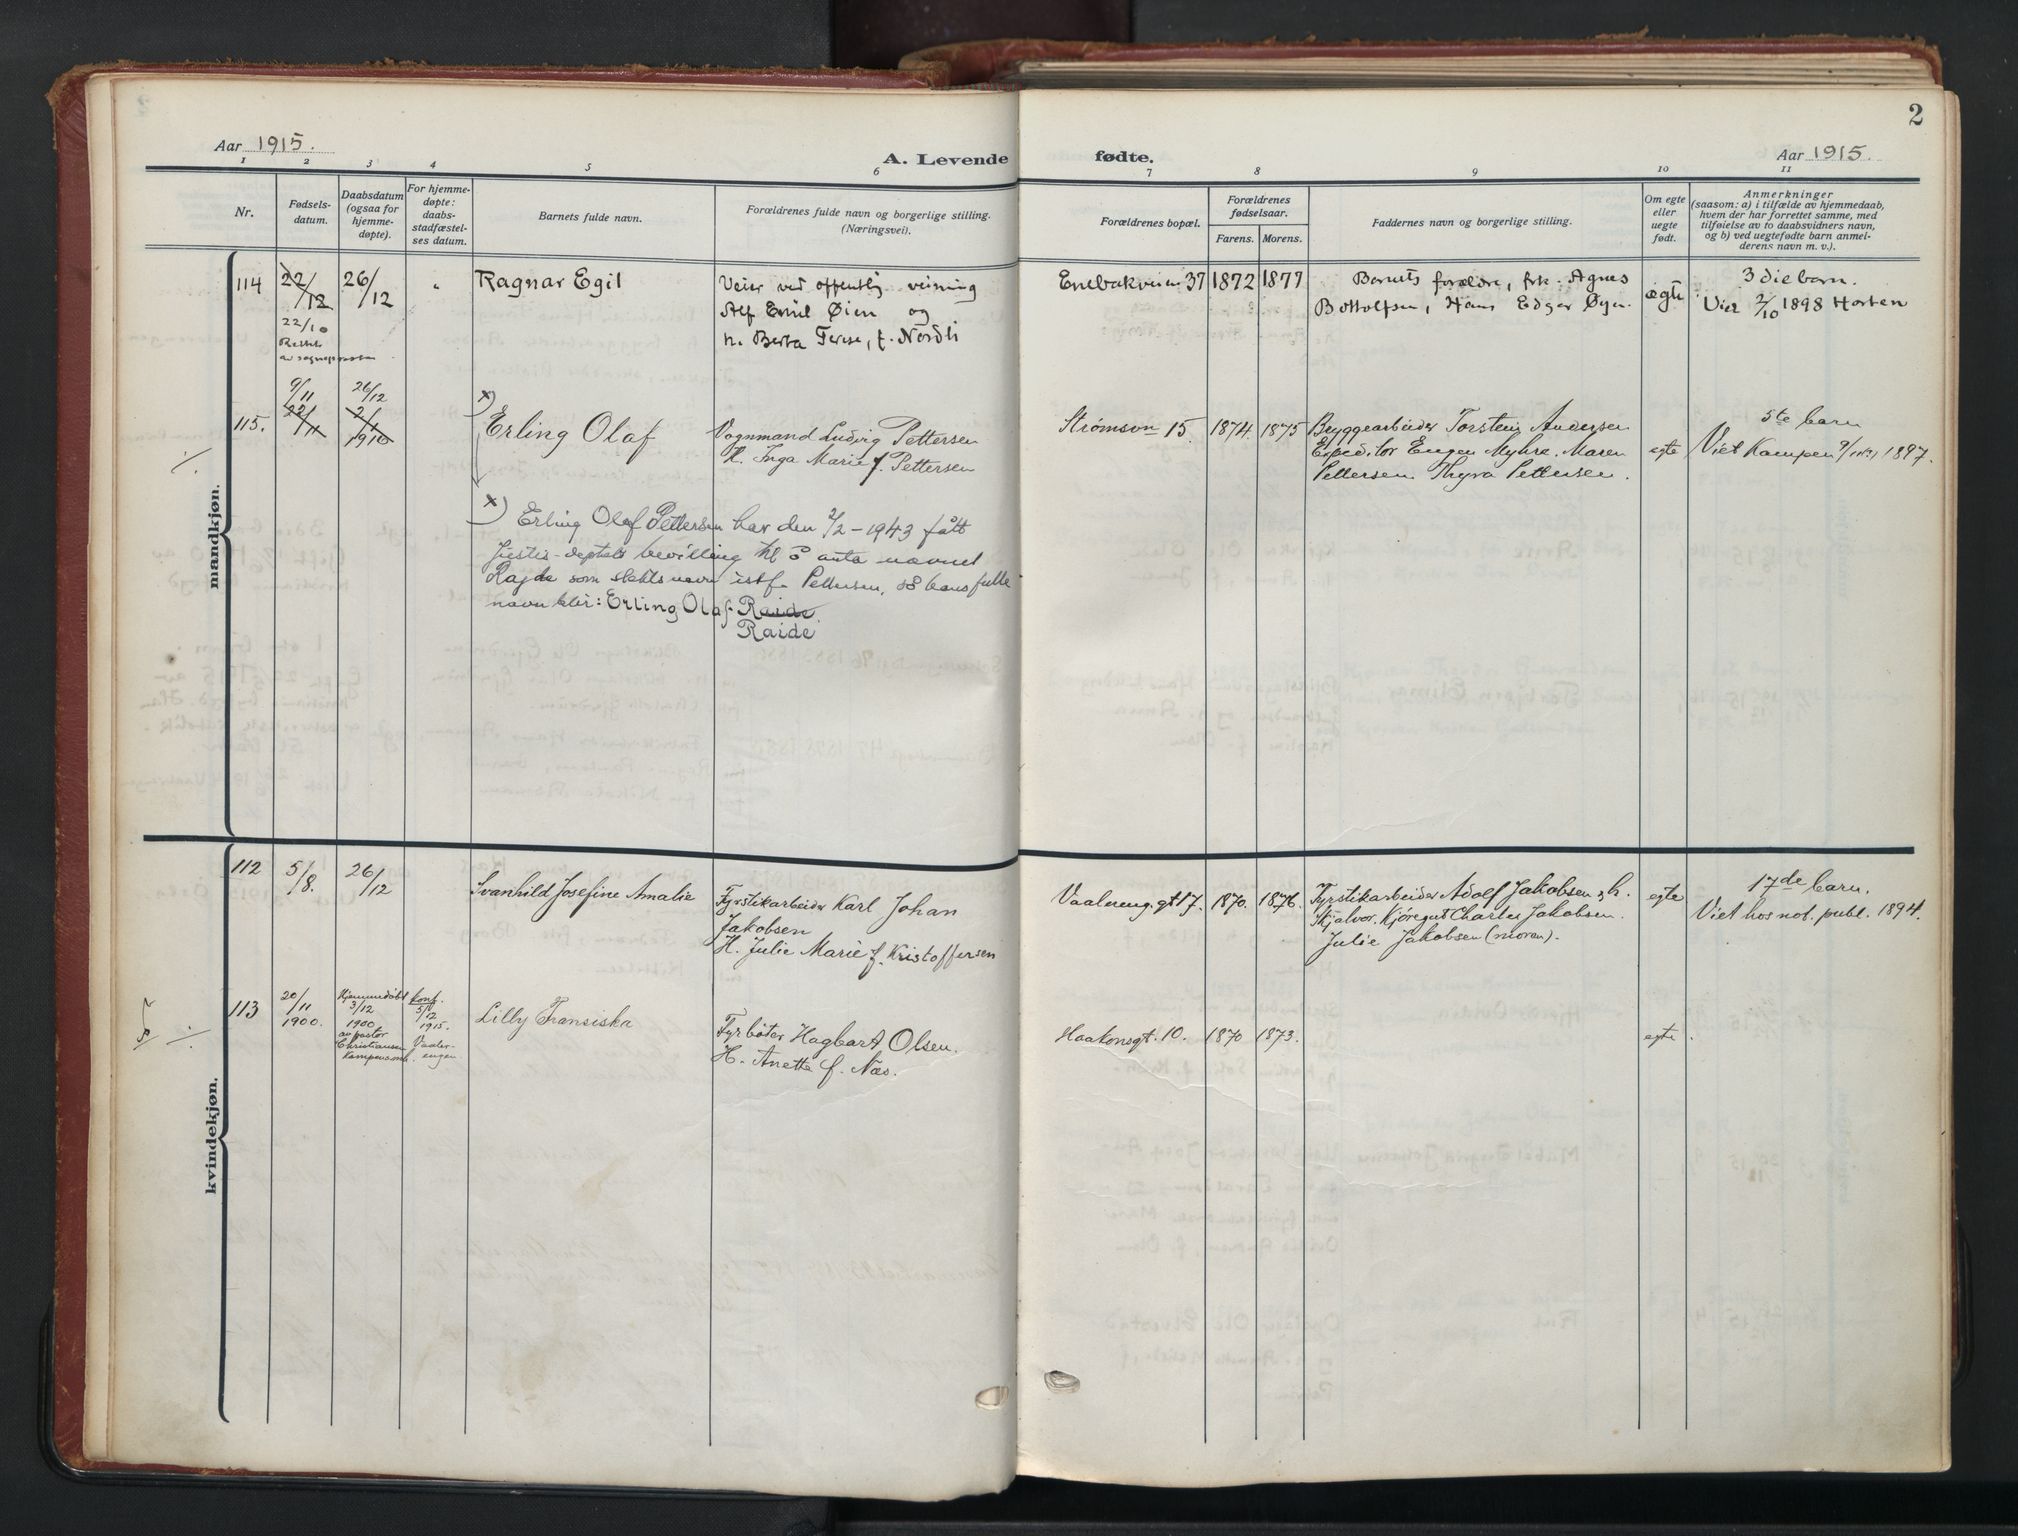 2
Aar 1915.
A. Levende fødte.
Aar 1915.
1 2 3 4 5 6 7 8 9 10 11
Nr.
Fødsels-
datum.
Daabsdatum
(ogsaa for
hjemme-
døpte).
For hjemme-
døpte:
daabs-
stadfæstel-
ses datum.
Barnets fulde navn.
Forældrenes fulde navn og borgerlige stilling.
(Næringsvei).
Forældrenes bopæl.
Forældrenes
fødselsaar.
Farens. Morens.
Faddernes navn og borgerlige stilling.
Om egte
eller
uegte
født.
Anmerkninger
(saasom: a) i tilfælde av hjemmedaab,
hvem der har forrettet samme, med
tilføielse av to daabsvidners navn,
og b) ved uegtefødte barn anmel-
derens navn m. v.).
mandkjøn.
114
22/12
22/10
Rettet
av sognepresten
26/12
"
Ragnar Egil
Veier ved offentlig veining
Alf Emil Øien og
h. Berta Terese, f. Nordli
Enebakveien 37
1872
1877
Barnets forældre, frk. Agnes
Bottolfsen, Hans Edgar Øyen.
egte
3die barn.
Viet 2/10 1898 Horten
115.
9/11
22/11
26/12
2/1
1916
x)
Erling Olaf
Vognmand Ludvig Pettersen
H. Inga Marie f. Pettersen
Strømsvn 15.
1874.
1875
Byggearbeider Torstein Andersen
Expeditor Eugen Myhre. Maren
Pettersen Thyra Pettersen.
egte
5te barn
Viet Kampen 9/ 1897.
x) Erling Olaf Pettersen har den 2/2 - 1943 fått
justis-deptets bevilling til å anta navnet
Rajde som slektsnavn istf. Pettersen, så hans fulle
navn blir: Erling Olaf Raide.
Raide
kvindekjøn.
112
5/8.
26/12
Svanhild Josefine Amalie
Fyrstikarbeider Karl Johan
Jakobsen
H. Julie Marie f. Kristoffersen
Vaalereng.gt 17.
1870.
1876.
Fyrstikarbeider Adolf Jakobsen, h.
Skjalvor. Kjøregut Charles Jakobsen.
Julie Jakobsen (moren).
egte
17de barn.
Viet hos not. publ. 1894.
113
20/11
1900.
Hjemmedøbt
3/12
1900
av pastor
Christiansen
Kampensmh.
konf.
5/12
1915.
Vaaler-
engen
Lilly Fransiska
Fyrbøter Hagbart Olsen.
H. Anette f. Næs.
Haakonsgt. 10.
1870
1873.
egte